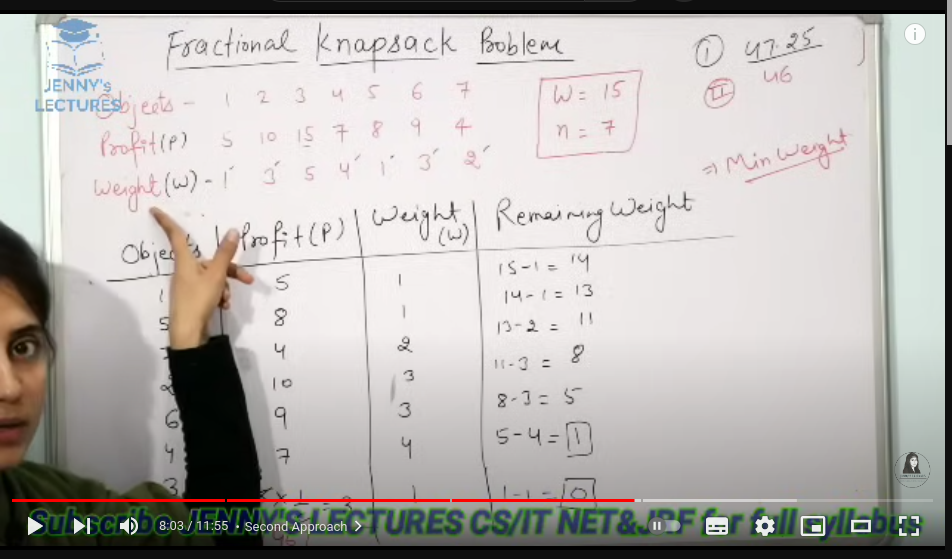 Fractional Knapsack Boblem
I 47.25
II 46
JENNY's
LECTURES
Objects - 1 2 3 4 5 6 7
Profit(P) 5 10 15 7 8 9 4
Weight(W) - 1 3 5 4 1 3 2
W = 15
n = 7
⇒ Min Weight
Objects Profit(P) Weight (W) Remaining Weight
1 5 1 15-1 = 14
5 8 1 14-1 = 13
4 2 13-2 = 11
2 10 3 11-3 = 8
6 9 3 8-3 = 5
4 7 4 5-4 = 1
3 1 1-1 = 0
Subscribe JENNY's LECTURES CS/IT NET&JRF for full syllabus
8:03 / 11:55 • Second Approach >